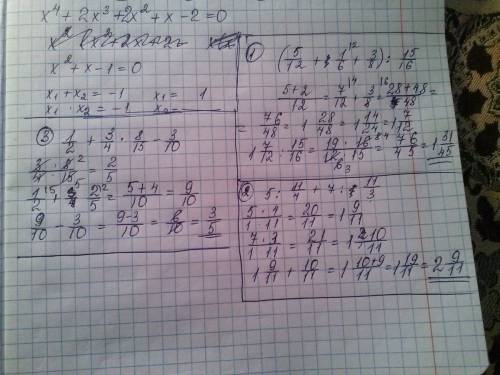 x⁴ + 2x³ + 2x² + x - 2 = 0
x² + x - 1 = 0
x₁ + x₂ = -1 x₁ = 1
x₁ · x₂ = -1 x₂ =
③ 1/2 + 3/4 · 8/15 - 3/10
3/4 · 8²/15₅ = 2/5
1/2 + 2/5 = (5+4)/10 = 9/10
9/10 - 3/10 = (9-3)/10 = 6/10 = 3/5
①
(5/12 + 1/6 + 3/8) : 15/16
(5+2)/12 = 7/12 + 3/8 = (28+48)/48 =
= 76/48 = 1 28/48 = 1 14/24 = 1 7/12
1 7/12 : 15/16 = 19/12 · 16/15 = 76/45 = 1 31/45
② 5 : 11/4 + 7 : 11/3
5/1 · 4/11 = 20/11 = 1 9/11
7/1 · 3/11 = 21/11 = 1 10/11
1 9/11 + 10/11 = 1 (10+9)/11 = 1 19/11 = 2 9/11